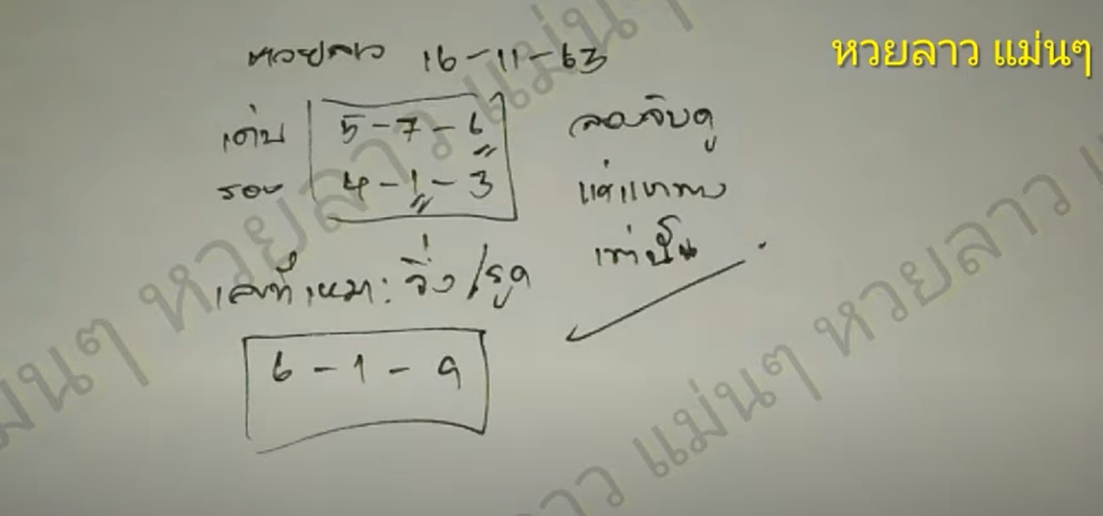 หวยลาว 16-11-63
หวยลาว แม่นๆ
เด่น 5-7-6
รอง 4-1-3
ลองจับดู
แค่แนวทาง
เท่านั้น
เลขที่เหมาะ วิ่ง/รูด
6-1-9
หวยลาว แม่นๆ หวยลาว แม่นๆ
แม่นๆ หวยลาว แม่นๆ หวยลาว